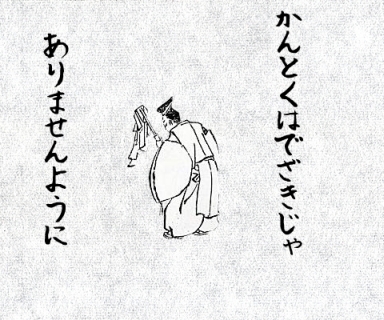 かんとくはでざきじゃ
ありませんように